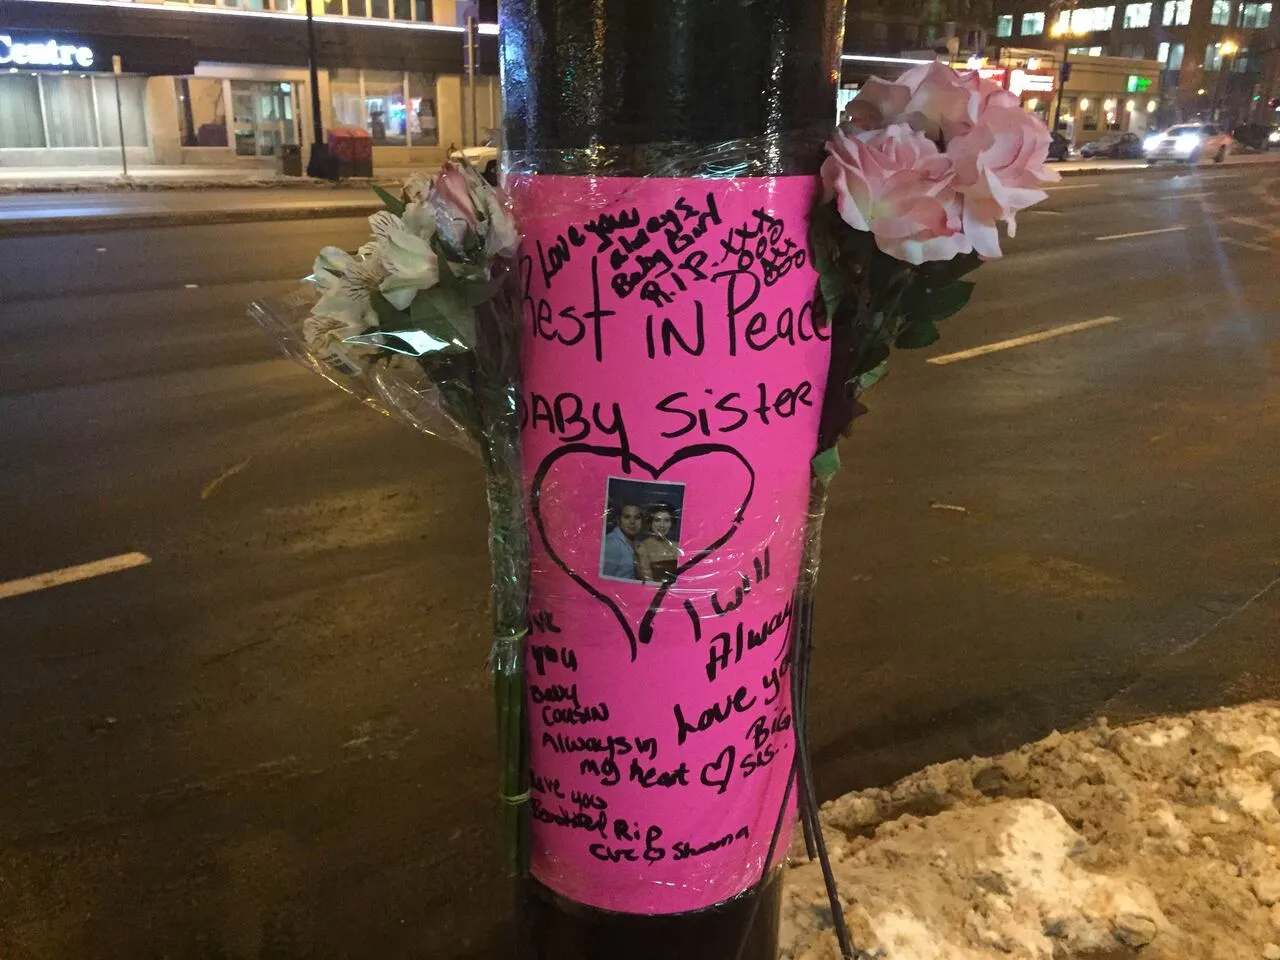 Centre
Love you
Always
Baby Girl
R.I.P. xxxo
Rest IN Peace
BABY SisTER
I will
Always
Love you
BiG
Sis..
you
Baby
COUSIN
Always in
my heart
Love you
Beautiful RiP
Shawna